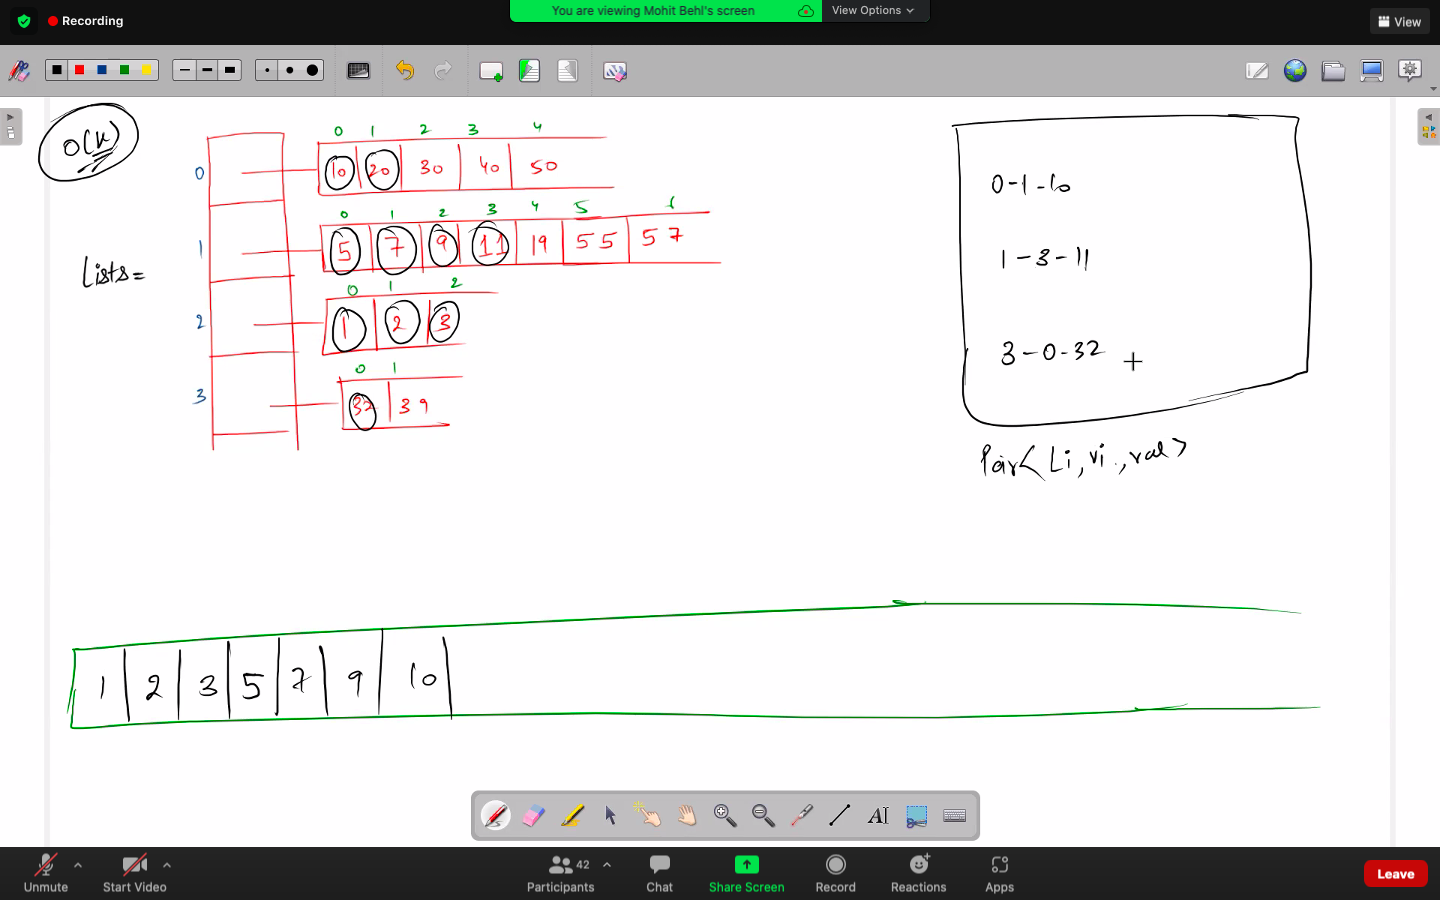 Recording
You are viewing Mohit Behl's screen
View Options
View
O(k)
0 1 2 3 4
0 10 20 30 40 50
0 1 2 3 4 5 6
1 5 7 9 11 19 55 57
Lists=
0 1 2
2 1 2 3
0 1
3 32 39
0-1-10
1-3-11
3-0-32
Pair<Li,vi,val>
1 2 3 5 7 9 10
AI
Unmute
Start Video
42
Participants
Chat
Share Screen
Record
Reactions
Apps
Leave